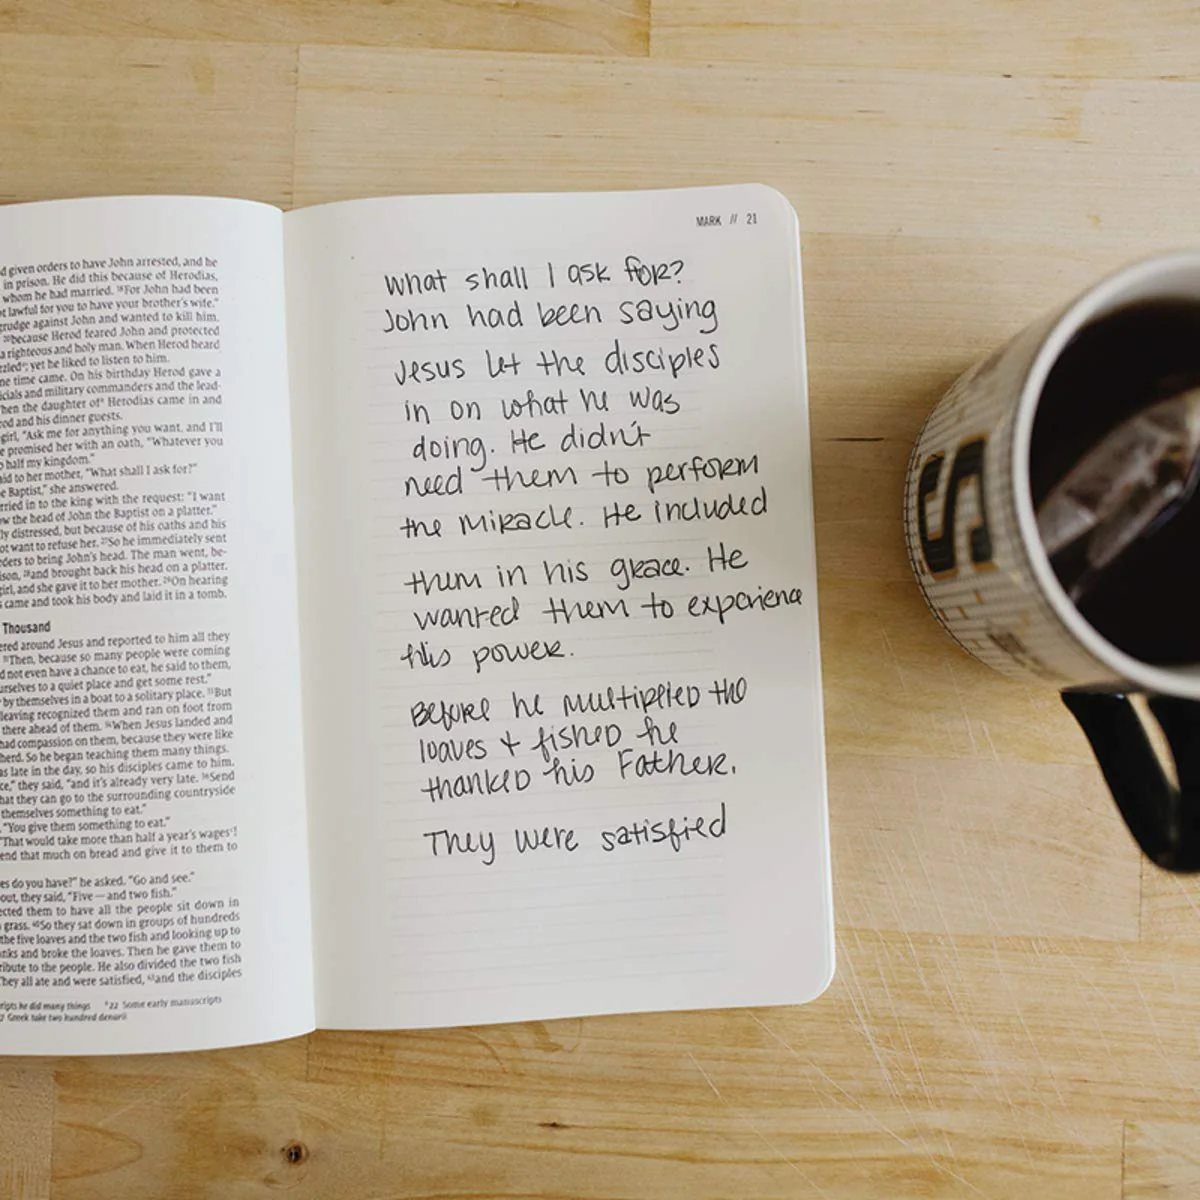 d given orders to have John arrested, and he
in prison. He did this because of Herodias,
whom he had married. 18For John had been
t lawful for you to have your brother's wife."
grudge against John and wanted to kill him.
20because Herod feared John and protected
a righteous and holy man. When Herod heard
zled; yet he liked to listen to him.
ne time came. On his birthday Herod gave a
icials and military commanders and the lead-
hen the daughter of Herodias came in and
rod and his dinner guests.
girl, "Ask me for anything you want, and I'll
e promised her with an oath, "Whatever you
o half my kingdom."
aid to her mother, "What shall I ask for?"
e Baptist," she answered.
rried in to the king with the request: "I want
w the head of John the Baptist on a platter."
ly distressed, but because of his oaths and his
ot want to refuse her. 27So he immediately sent
ders to bring John's head. The man went, be-
ison, 28and brought back his head on a platter.
girl, and she gave it to her mother. 29On hearing
s came and took his body and laid it in a tomb.
Thousand
ered around Jesus and reported to him all they
31Then, because so many people were coming
d not even have a chance to eat, he said to them,
urselves to a quiet place and get some rest."
by themselves in a boat to a solitary place. 33But
leaving recognized them and ran on foot from
there ahead of them. 34When Jesus landed and
had compassion on them, because they were like
herd. So he began teaching them many things.
as late in the day, so his disciples came to him.
ce," they said, "and it's already very late. 36Send
hat they can go to the surrounding countryside
themselves something to eat."
"You give them something to eat."
"That would take more than half a year's wages!
end that much on bread and give it to them to
es do you have?" he asked. "Go and see."
out, they said, "Five—and two fish."
ected them to have all the people sit down in
grass. 40So they sat down in groups of hundreds
the five loaves and the two fish and looking up to
nks and broke the loaves. Then he gave them to
ribute to the people. He also divided the two fish
hey all ate and were satisfied, 43and the disciples
ripts he did many things 22 Some early manuscripts
7 Greek take two hundred denarii
MARK // 21
What shall I ask for?
John had been saying
Jesus let the disciples
in on what he was
doing. He didn't
need them to perform
the miracle. He included
them in his grace. He
wanted them to experience
his power.
Before he multiplied the
loaves + fished he
thanked his Father.
They were satisfied
S